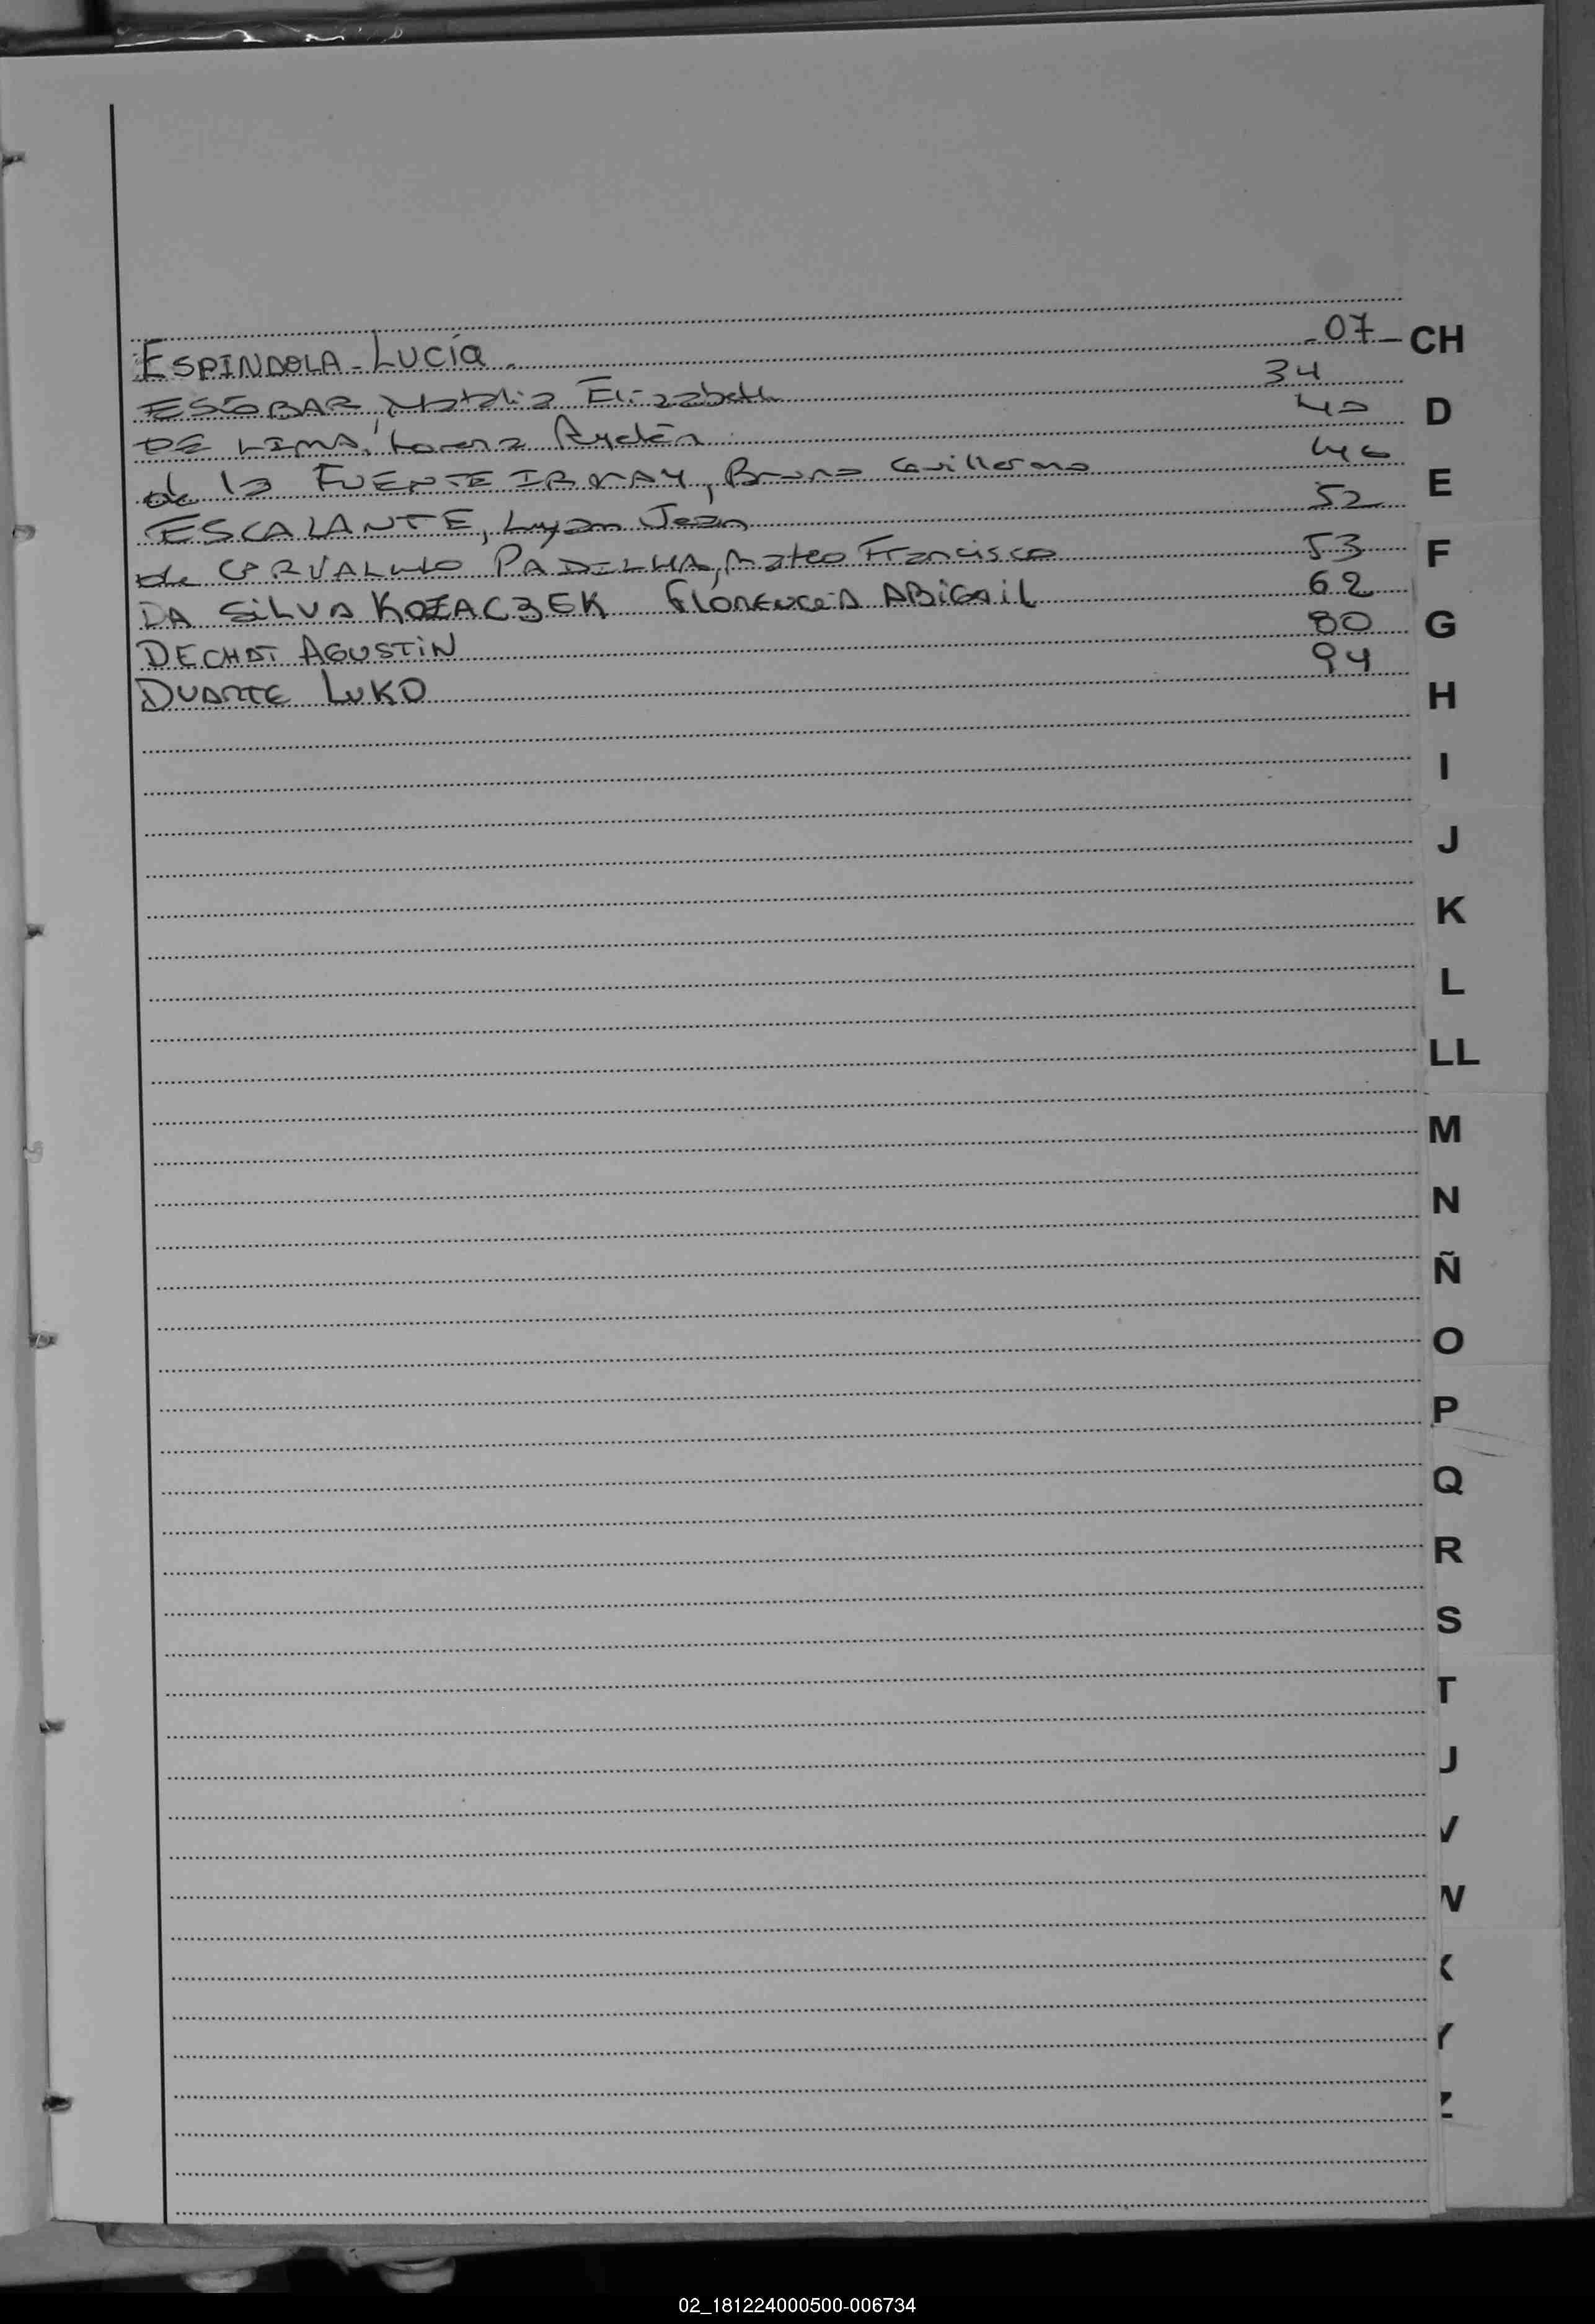 ESPINDOLA - LUCÍA. 07 -
ESCOBAR, Natalia Elizabeth 34
DE LIMA, Lorena Ayelén 40
de la FUENTE IRMAY, Bruno Guillermo 46
ESCALANTE, Luyan Jean 52
de CARVALHO PADILHA, Mateo Francisco 53
DA SILVA KOZACZEK FLORENCIA ABIGAIL 62
DECHAT AGUSTIN 80
DUARTE LUKO 94
CH
D
E
F
G
H
I
J
K
L
LL
M
N
Ñ
O
P
Q
R
S
T
U
V
W
X
Y
Z
02_181224000500-006734